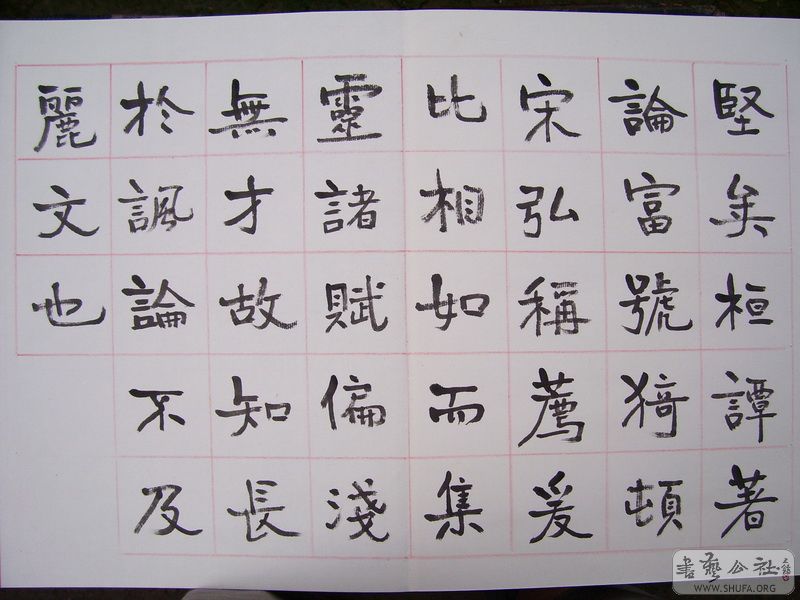 堅矣桓譚著
論富號猗頓
宋弘稱薦爰
比相如而集
靈諸賦偏淺
無才故知長
於諷論不及
麗文也
書藝公社
WWW.SHUFA.ORG